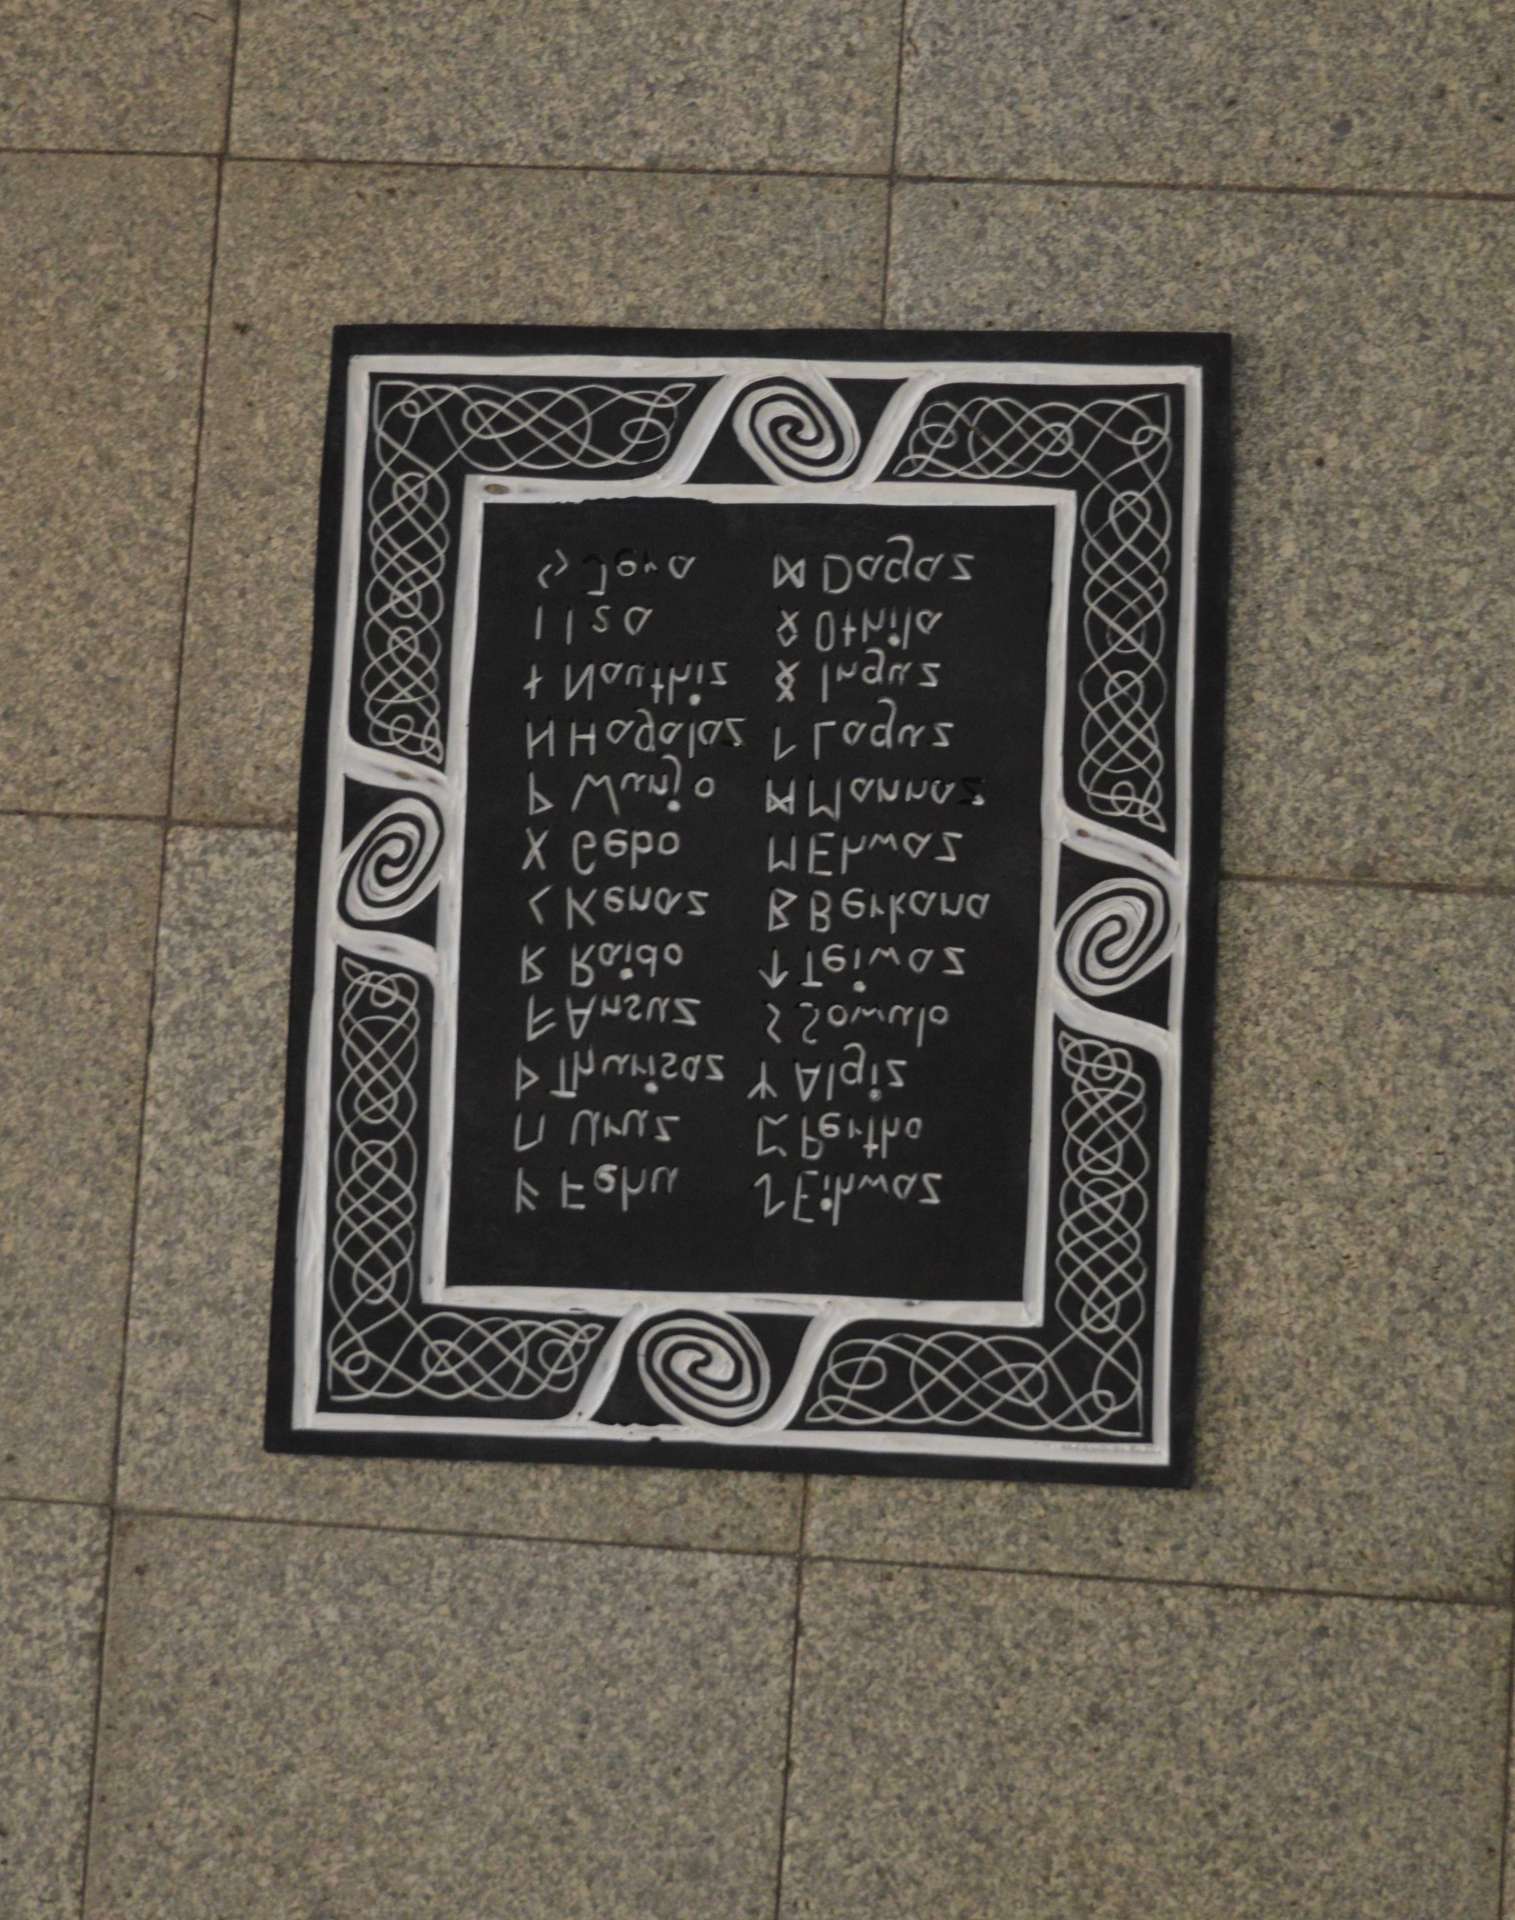 ᚠ Fehu
ᚢ Uruz
ᚦ Thurisaz
ᚨ Ansuz
ᚱ Raido
ᚲ Kenaz
ᚷ Gebo
ᚹ Wunjo
ᚺ Hagalaz
ᚾ Nauthiz
ᛁ Isa
ᛃ Jera
ᛇ Eihwaz
ᛈ Pertho
ᛉ Algiz
ᛊ Sowulo
ᛏ Teiwaz
ᛒ Berkana
ᛖ Ehwaz
ᛗ Mannaz
ᛚ Laguz
ᛝ Inguz
ᛟ Othila
ᛞ Dagaz